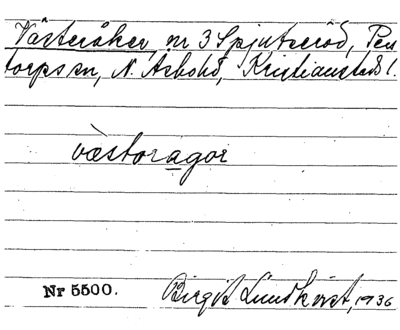 Västeråker, nr 3 Spjutseröd, Per
torps sn, N. Åsbohd, Kristianstads l.
væstoragor
Nr 5500.
Birgit Lundkvist, 1936